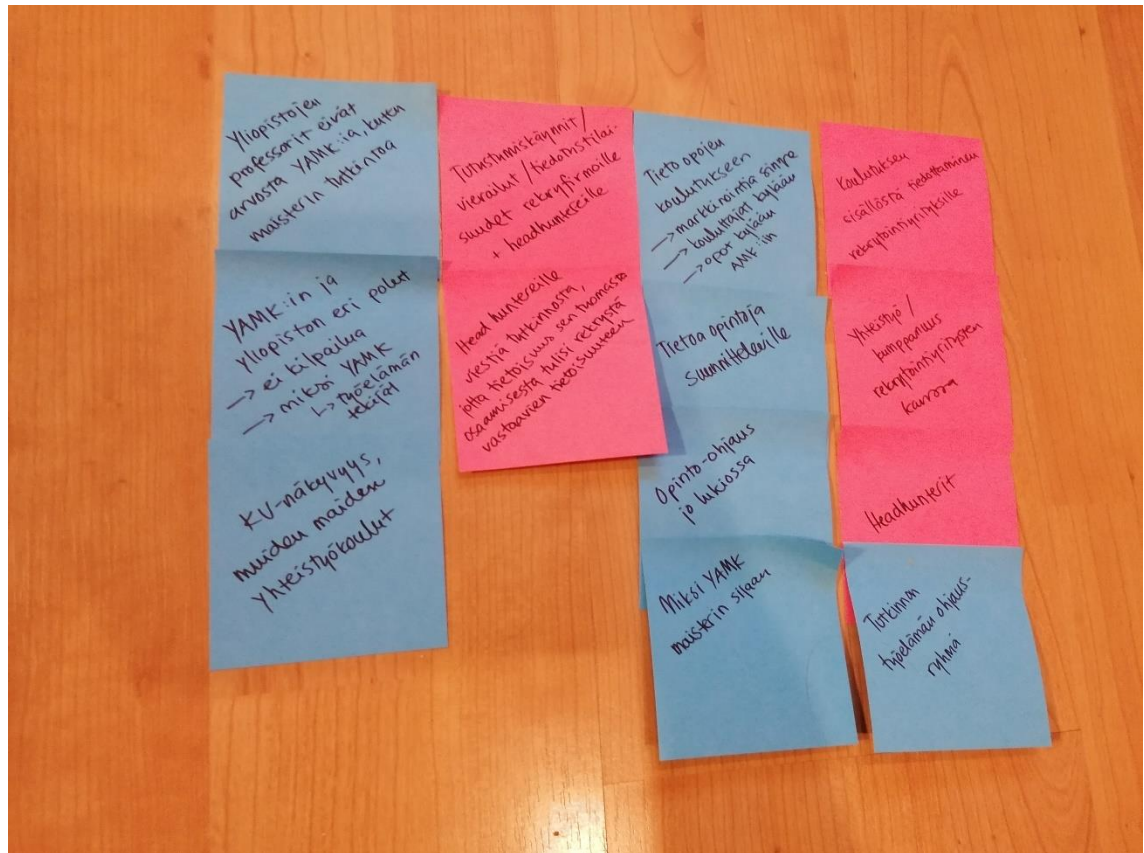 Yliopistojen
professorit eivät
arvosta YAMK:ia, kuten
maisterin tutkintoa
YAMK:in ja
yliopiston eri polut
→ ei kilpailua
→ miksi YAMK
↳ työelämän
tekijät
KV-näkyvyys,
muiden maiden
yhteistyökoulut
Tutustumiskäynnit /
vierailut / tiedotustilai-
suudet rekryfirmoille
+ headhuntereille
Head huntereille
viestiä tutkinnosta,
jotta tietoisuus sen tuomasta
osaamisesta tulisi rekrystä
vastaavien tietoisuuteen
Tieto opojen
koulutukseen
→ markkinointia sinne
→ kouluttajat kylään
→ opot kylään
AMK:iin
Tietoa opintoja
suunnitteleville
Opinto-ohjaus
jo lukiossa
Miksi YAMK
maisterin sijaan
Koulutuksen
sisällöstä tiedottaminen
rekrytointiyrityksille
Yhteistyö /
kumppanuus
rekrytointiyritysten
kanssa
Headhunterit
Tutkinnon
työelämän ohjaus-
ryhmä